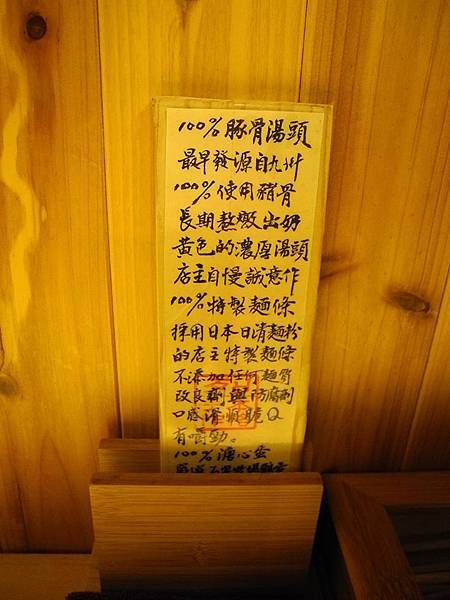 100%豚骨湯頭
最早發源自九州
100%使用豬骨
長期熬燉出奶
黃色的濃厚湯頭
店主自慢誠意作
100%特製麵條
採用日本日清麵粉
的店主特製麵條
不添加任何麵質
改良劑與防腐劑
口感滑順脆Q
有嚼勁。
100%溏心蛋